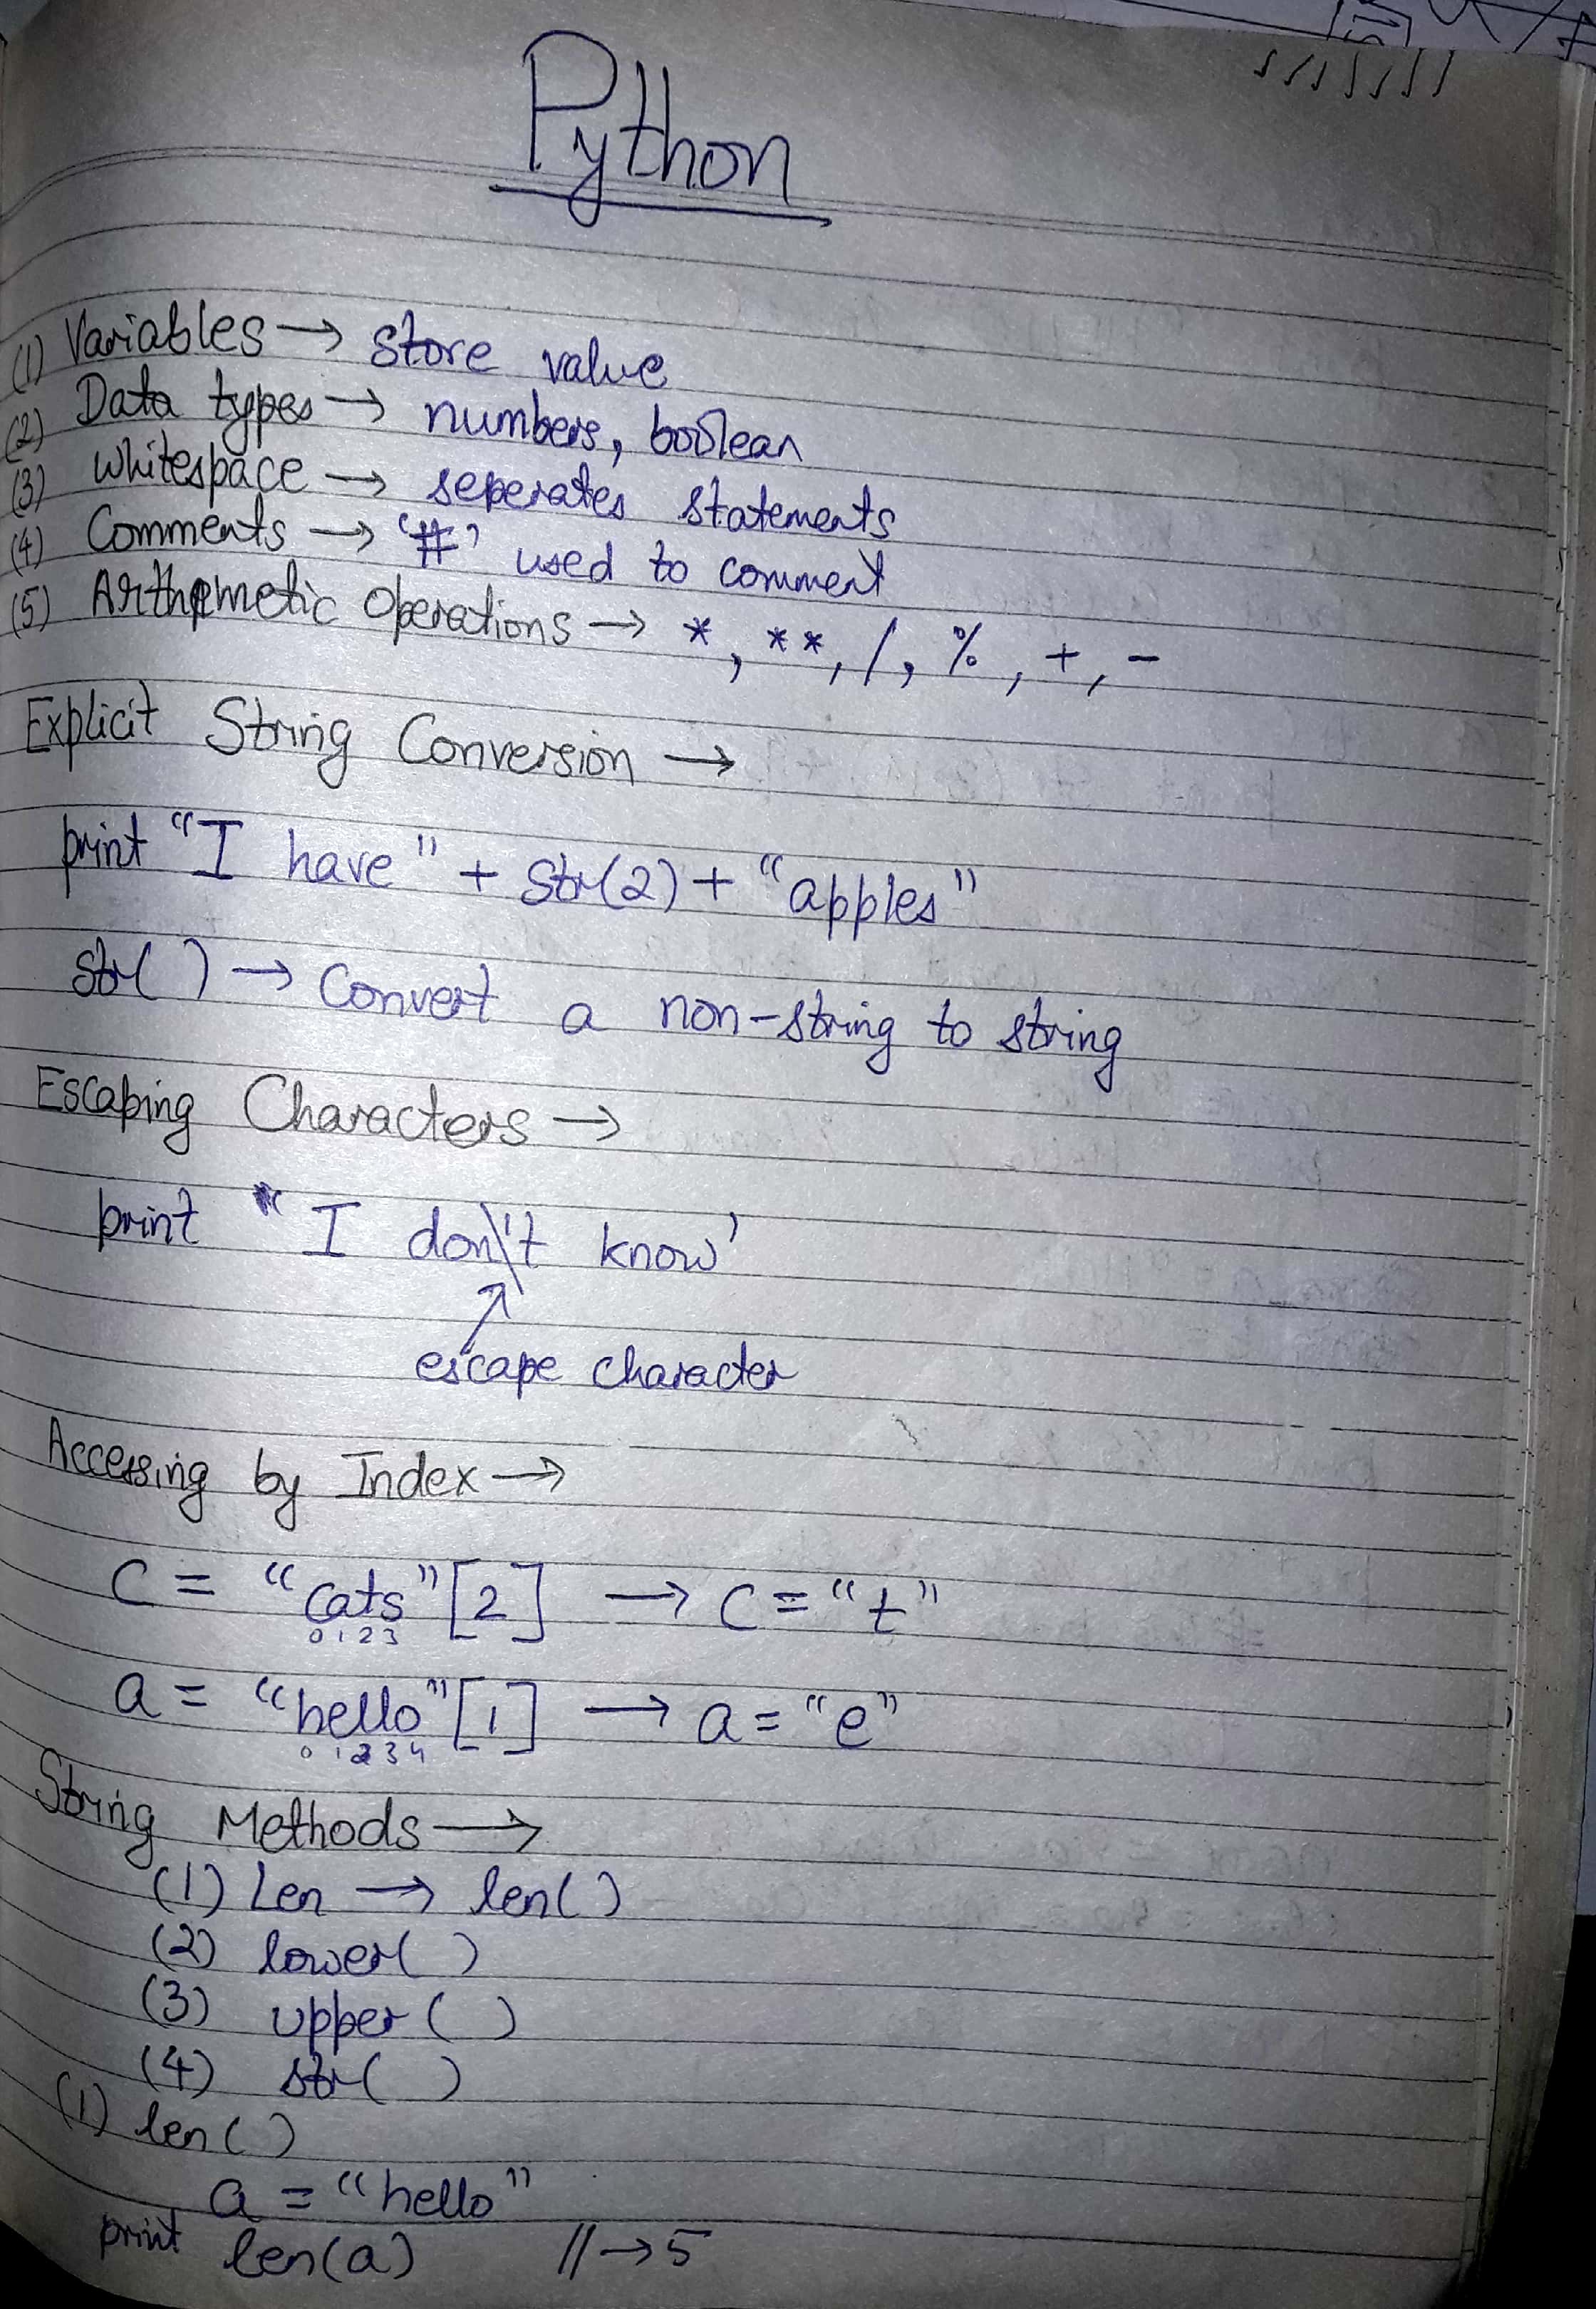 Python
(1) Variables → store value
(2) Data types → numbers, boolean
(3) Whitespace → seperates statements
(4) Comments → '#' used to comment
(5) Arthemetic Operations → *, **, /, %, +, -
Explicit String Conversion →
print "I have" + str(2) + "apples"
str( ) → Convert a non-string to string
Escaping Characters →
print 'I don\'t know'
escape character
Accessing by Index →
C = "cats"[2] → C = "t"
0 1 2 3
a = "hello"[1] → a = "e"
0 1 2 3 4
String Methods →
(1) Len → len( )
(2) lower( )
(3) upper( )
(4) str( )
(1) len( )
a = "hello"
print len(a) // → 5